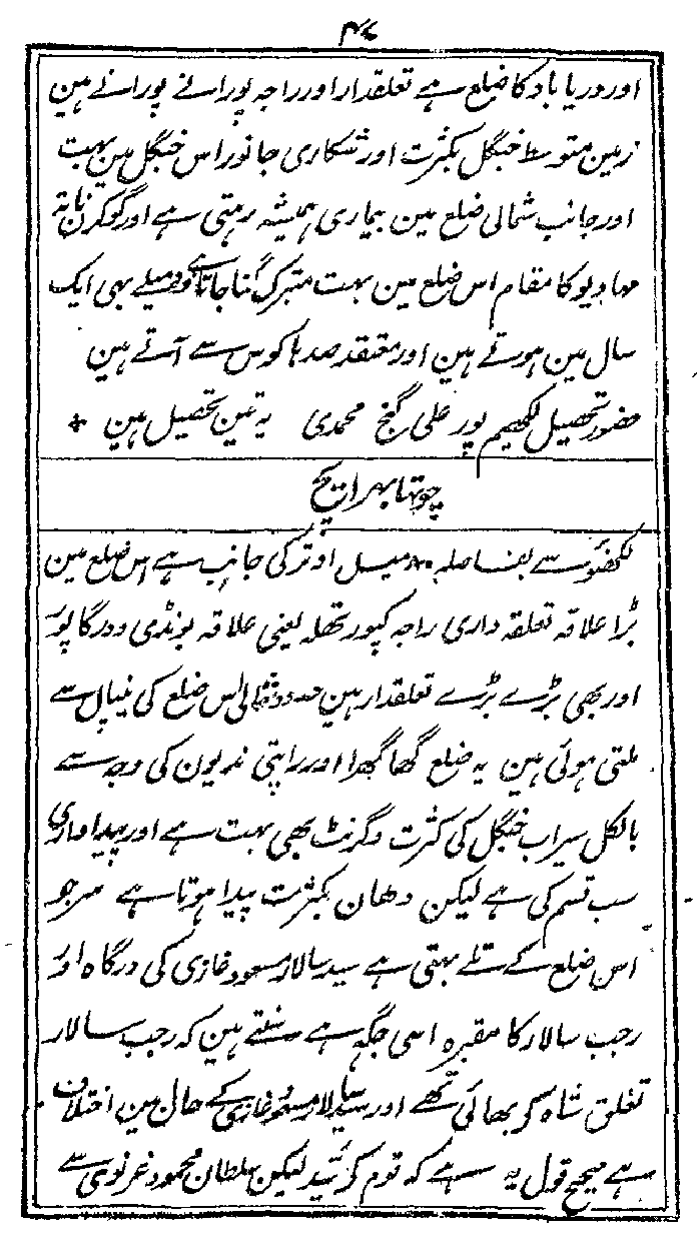 ۴۷
اور دریاباد کا ضلع ہے تعلقدار اور راجہ پورانے پورانے ہین
زمین متوسط جنگل بکثرت اور شکاری جانور اس جنگل مین بہت
اور جانب شمالی ضلع مین بیماری ہمیشہ رہتی ہے اور گوکرن ناتہ
مہادیو کا مقام اس ضلع مین بہت متبرک گنا جاتا ہے دو میلے بھی ایک
سال مین ہوتے ہین اور معتقد صدہا کوس سے آتے ہین
حضور تحصیل لکھیم پور علی گنج محمدی یہ تین تحصیل ہین *
چوتہا بہرایچ
لکھنؤ سے بفاصلہ میل اوتر کی جانب ہے اس ضلع مین
بڑا علاقہ تعلقہ داری راجہ کپورتھلہ یعنی علاقہ بونڈی و درگاپور
اور بھی بڑے بڑے تعلقدار ہین حدود شمالی اس ضلع کی نیپال سے
ملتی ہوئی ہین یہ ضلع گھاگھرا اور راپتی ندیون کی وجہ سے
بالکل سیراب جنگل کی کثرت و گرنٹ بھی بہت ہے اور پیداواری
سب قسم کی ہے لیکن دھان بکثرت پیدا ہوتا ہے سرجو
اس ضلع کے تلے بہتی ہے سید سالار مسعود غازی کی درگاہ اور
رجب سالار کا مقبرہ اسی جگہ ہے سنتے ہین کہ رجب سالار
تغلق شاہ کر بھائی تھے اور سید سالار مسعود غازی کے حال مین اختلاف
ہے صحیح قول یہ ہے کہ قوم کے سید لیکن سلطان محمود غزنوی سے